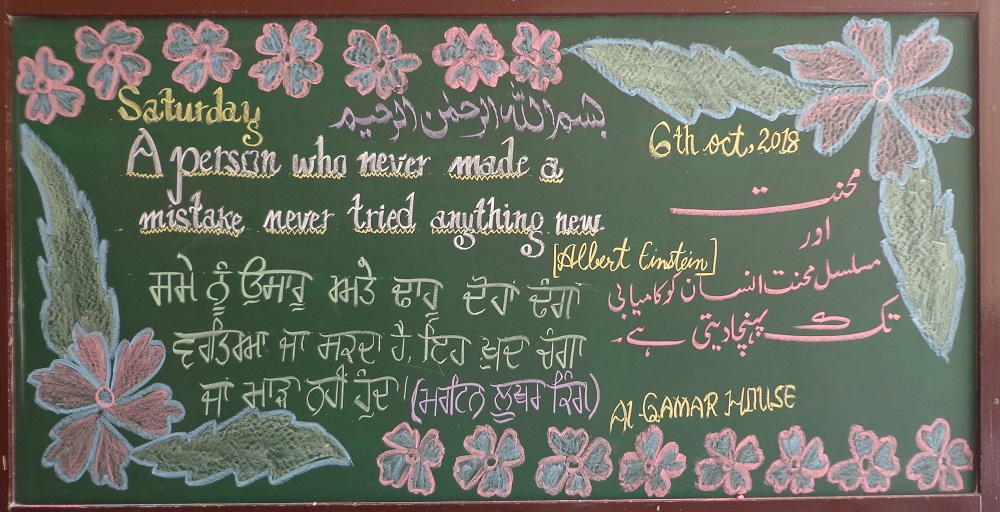 Saturday
بسم اللہ الرحمٰن الرحیم
6th oct, 2018
A person who never made a
mistake never tried anything new.
[Albert Einstein]
محنت
اور
مسلسل محنت انسان کو کامیابی
تک پہنچا دیتی ہے۔
ਸਮੇ ਨੂੰ ਉਸਾਰੂ ਅਤੇ ਢਾਹੂ ਦੋਹਾਂ ਢੰਗਾਂ
ਵਰਤਿਆ ਜਾ ਸਕਦਾ ਹੈ, ਇਹ ਖ਼ੁਦ ਚੰਗਾ
ਜਾਂ ਮਾੜਾ ਨਹੀਂ ਹੁੰਦਾ। (ਮਾਰਟਿਨ ਲੂਥਰ ਕਿੰਗ)
Al-QAMAR HOUSE